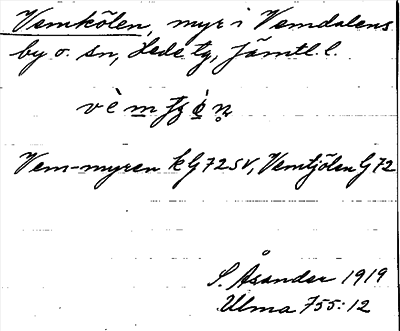 Vemkölen, myr i Vemdalens
by o. sn, Hede tg, Jämtl. l.
Vem-myren k G72SV, Vemtjölen G72
S. Åsander 1919
Ulma 755:12